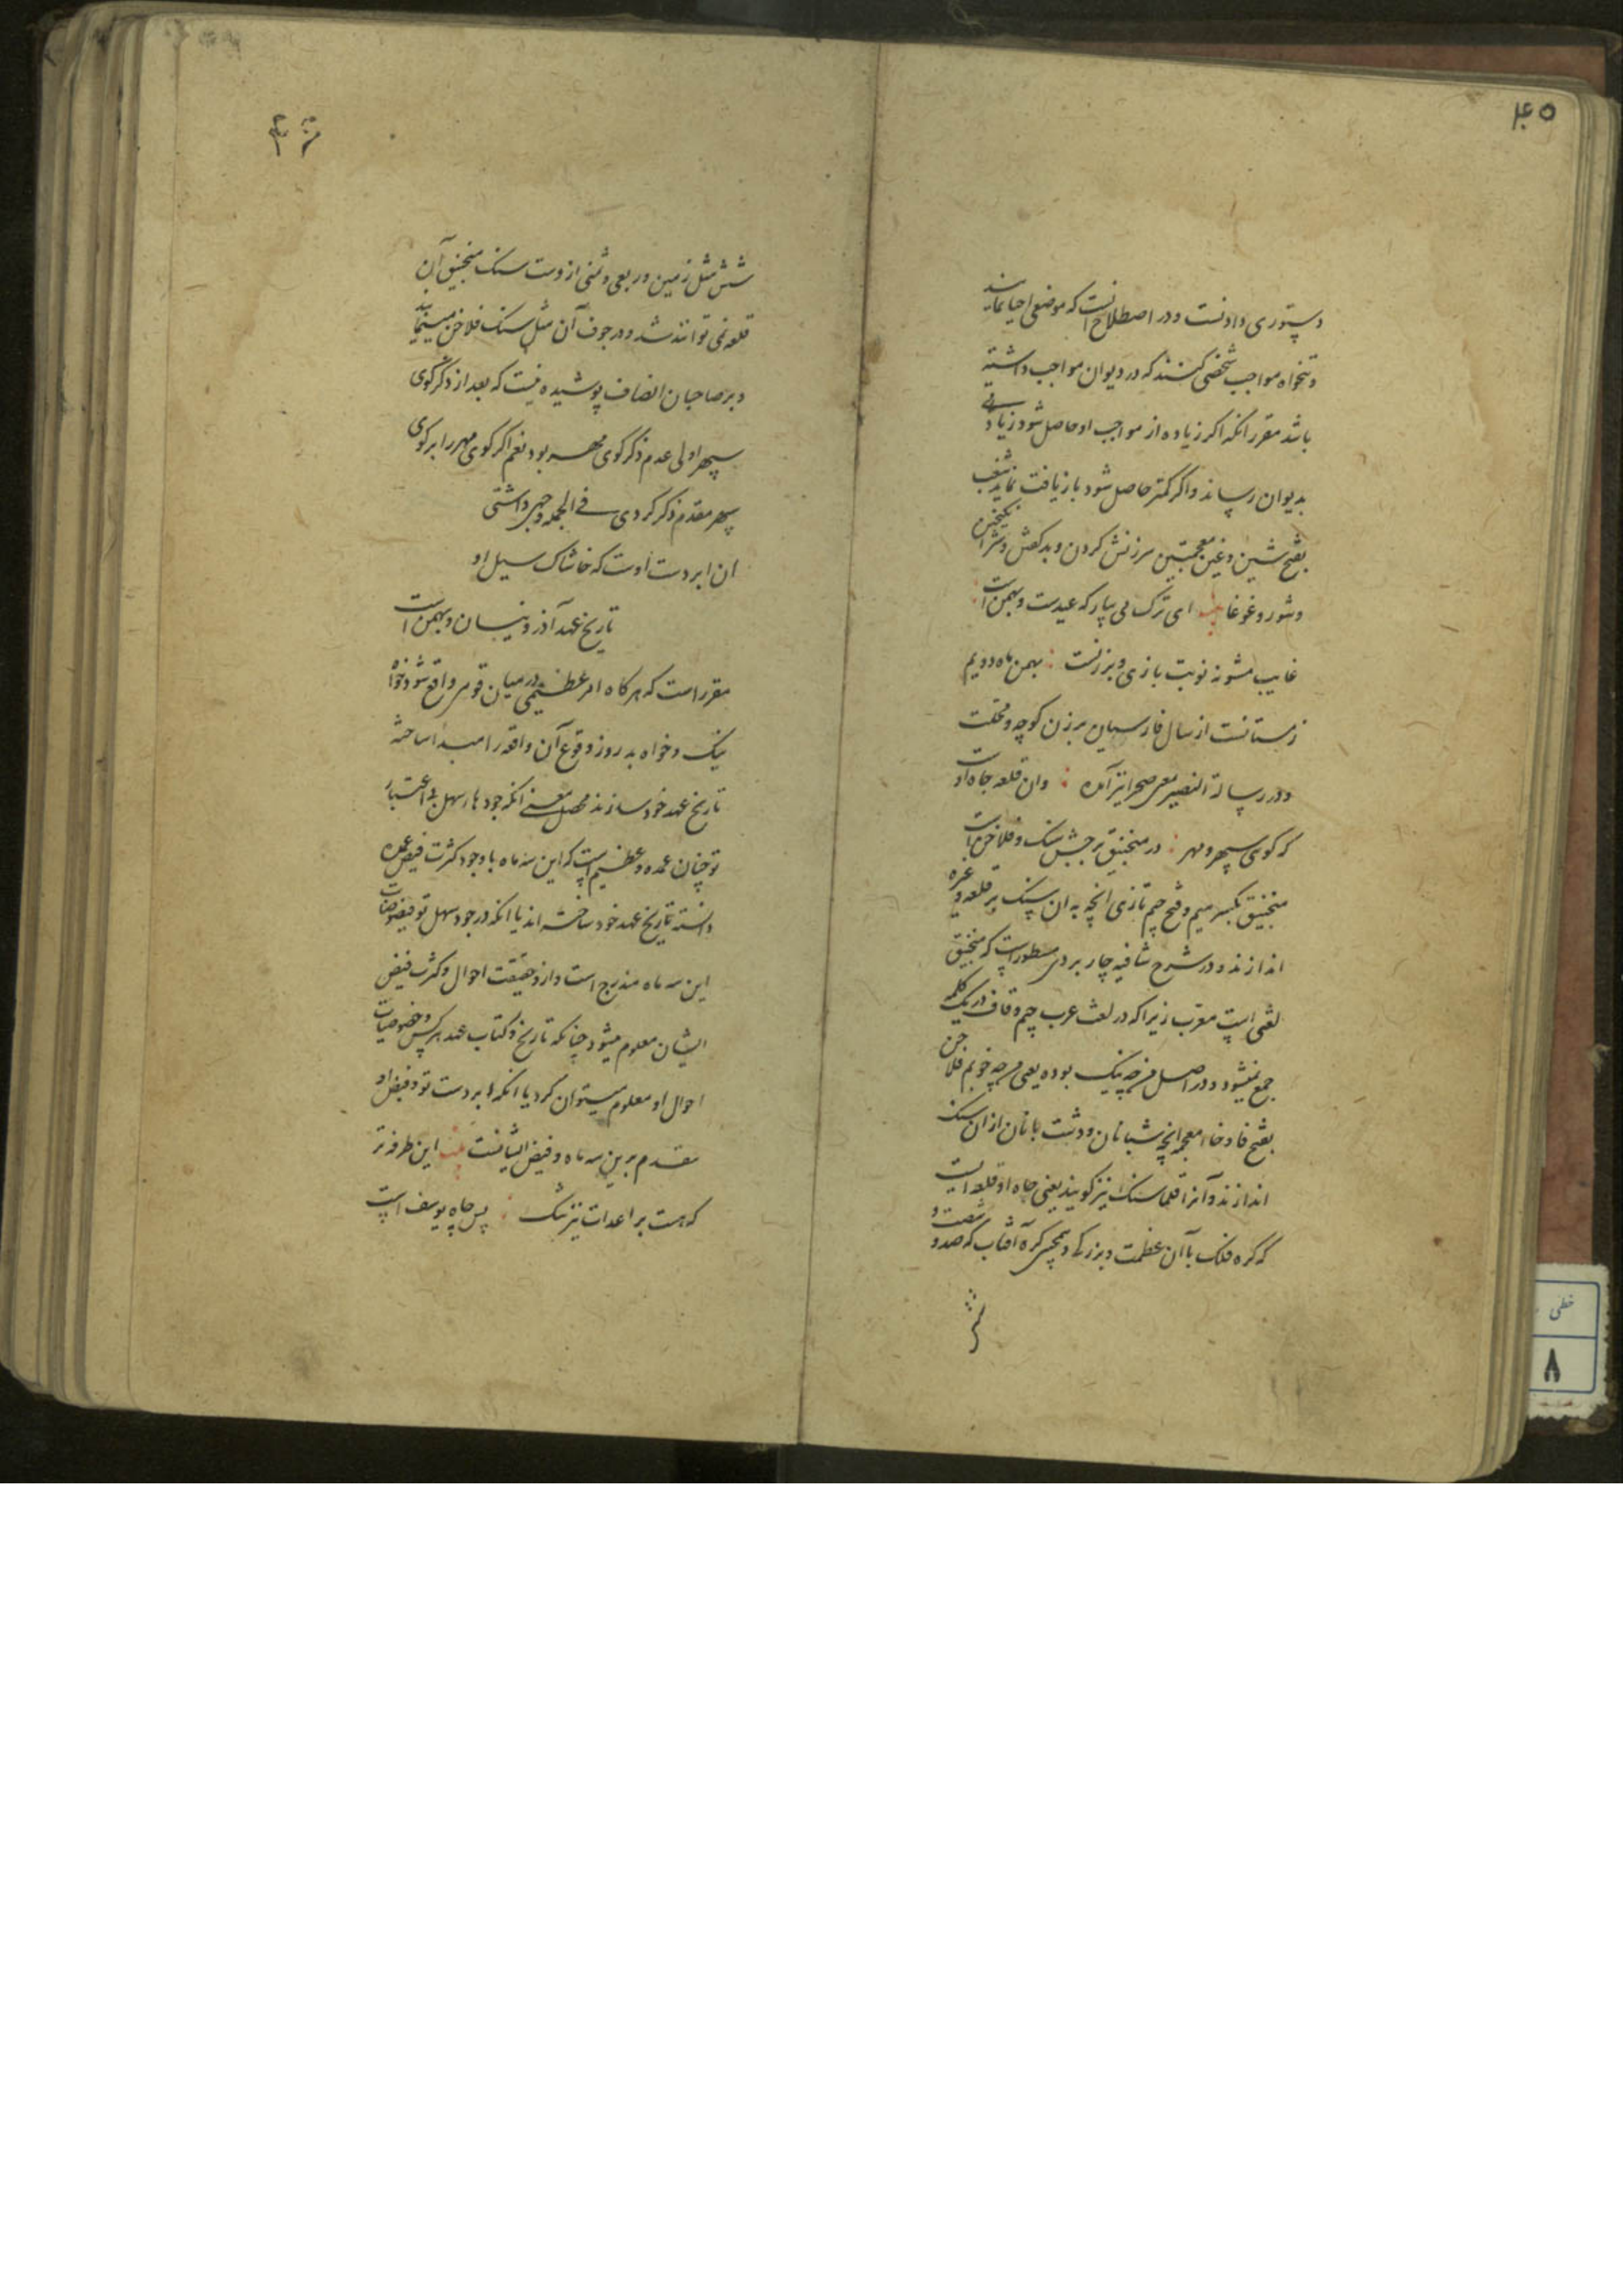 ۴۵
دستوری دادنست و در اصطلاح آنست که موضعی احیا نمایند
و تنخواه مواجب شخصی کنند که در دیوان مواجب داشته
باشد مقرر انکه اکر زیاده از مواجب او حاصل شود زیادتی
بدیوان رساند و اکر کمتر حاصل شود بازیافت نماید شغب
بفتح شین و غین معجمتین سرزنش کردن و بد کفتن و شر انکیختن
و شور و غوغا ای ترک می بیار که عیدست و بهمن است
غایب مشو نه نوبت بازی و برزنست بهمن ماه دویم
زمستانست از سال فارسیان برزن کوچه و محلت
و در رساله النصیر بمعنی صحرا نیز آمده وان قلعه جاه اوست
که کوی سپهر و مهر در منجنیق برجش سنک و فلاخن است
منجنیق بکسر میم و فتح جیم تازی انچه به ان سنک بر قلعه و غیره
اندازند و در شرح شافیه چاربردی مسطور است که منجنیق
لغتی است معرب زیرا که در لغت عرب جیم و قاف در یک کلمه
جمع نمیشود و در اصل من چه نیک بوده یعنی من چه خوبم فلاخن
بفتح فا و خاء معجمه انچه شبانان و دشت بانان از ان سنک
اندازند و آنرا قلماسنک نیز کویند یعنی جاه او قلعه ایست
که کره فلک با آن عظمت و بزرکی و همچنین کره آفتاب که صد و شصت و
شش
شش مثل زمین و ربعی و ثمنی از وست سنک منجنیق آن
قلعه نمی تواند شد و در جوف آن مثل سنک فلاخن مینماید
و بر صاحبان انصاف پوشیده نیست که بعد از ذکر کوی
سپهر اولی عدم ذکر کوی مهر بود نعم اکر کوی مهر را بر کوی
سپهر مقدم ذکر کردی فی الجمله وجهی داشتی
ان ابر دست اوست که خاشاک سیل او
تاریخ عهد آذر و نیسان و بهمن است
مقرر است که هر کاه امر عظیمی در میان قومی واقع شود خواه
نیک و خواه بد روز وقوع آن واقعه را مبدا ساخته
تاریخ عهد خود سازند محصل معنی انکه جودهای سهل بی اعتبار
تو چنان عمده و عظیم است که این سه ماه با وجود کثرت فیض عمده
دانسته تاریخ عهد خود ساخته اند یا انکه در جود سهل تو فیوضات
این سه ماه مندرج است و ازو حقیقت احوال و کثرت فیض
ایشان معلوم میشود چنانکه تاریخ و کتاب عهد هر کس و خصوصیات
احوال او معلوم میتوان کرد یا انکه ابر دست تو و فیض او
مقدم برین سه ماه و فیض ایشانست این طرفه تر
که هست بر اعدات نیز تنک پس چاه یوسف است
خطی
۸